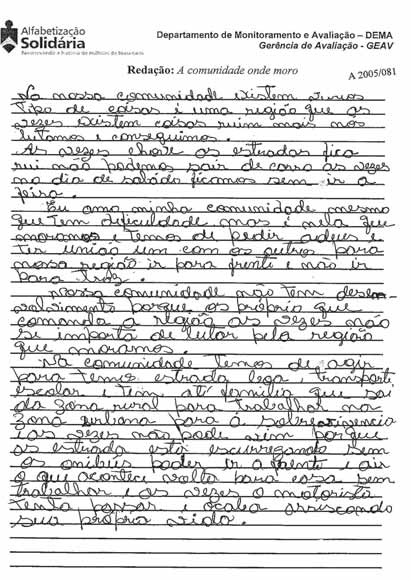 Alfabetização
Solidária
Departamento de Monitoramento e Avaliação – DEMA
Gerência de Avaliação - GEAV
Redação: A comunidade onde moro
A 2005/081
Na nossa comunidade existem varios
tipo de coisas i uma região que as
vezes existem coisas ruim mais nos
lutamos e conseguimos.
As vezes chove as estradas fica
rui não podemos sair de carro as vezes
no dia de sabado ficamos sem ir a
feira.
Eu amo minha comunidade mesmo
que tem dificuldade mas i nela que
moramos i temos de pedir a deus i
ter união um com os outros para
nossa região ir para frenti e não ir
para traz.
nossa comunidade não tem desem-
volvimento porque os proprio que
comanda a região as vezes não
se importa de lutar pela região
que moramos.
Na comunidade temos de agir
para temis estrada boa, transporte
escolar i tem até familia que sai
da zona rural para trabalhar na
zona urbana para a sobrevivencia
i as vezes não pode vem porque
as estrada está escurregando sem
os onibus poder ir a frente i ai
o que acontece volta para casa sem
trabalhar i as vezes o motorista
tenta passar i acaba arriscando
sua própria vida.